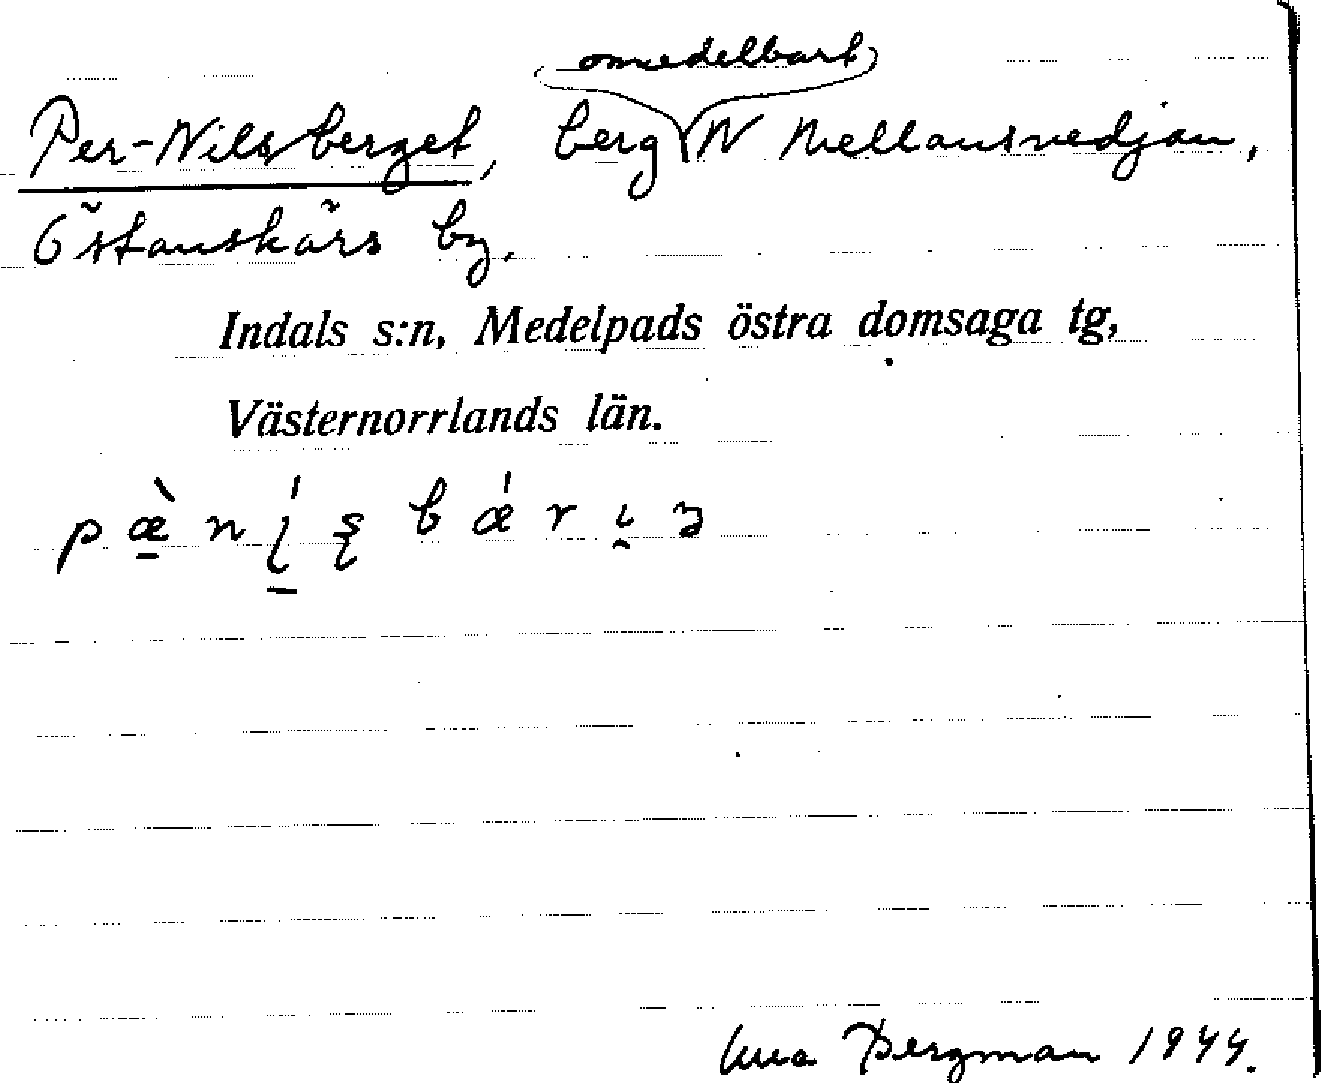 omedelbart
Per-Nilsberget, berg N Mellansvedjan,
Östanskärs by.
Indals s:n, Medelpads östra domsaga tg,
Västernorrlands län.
Bergman 1944.